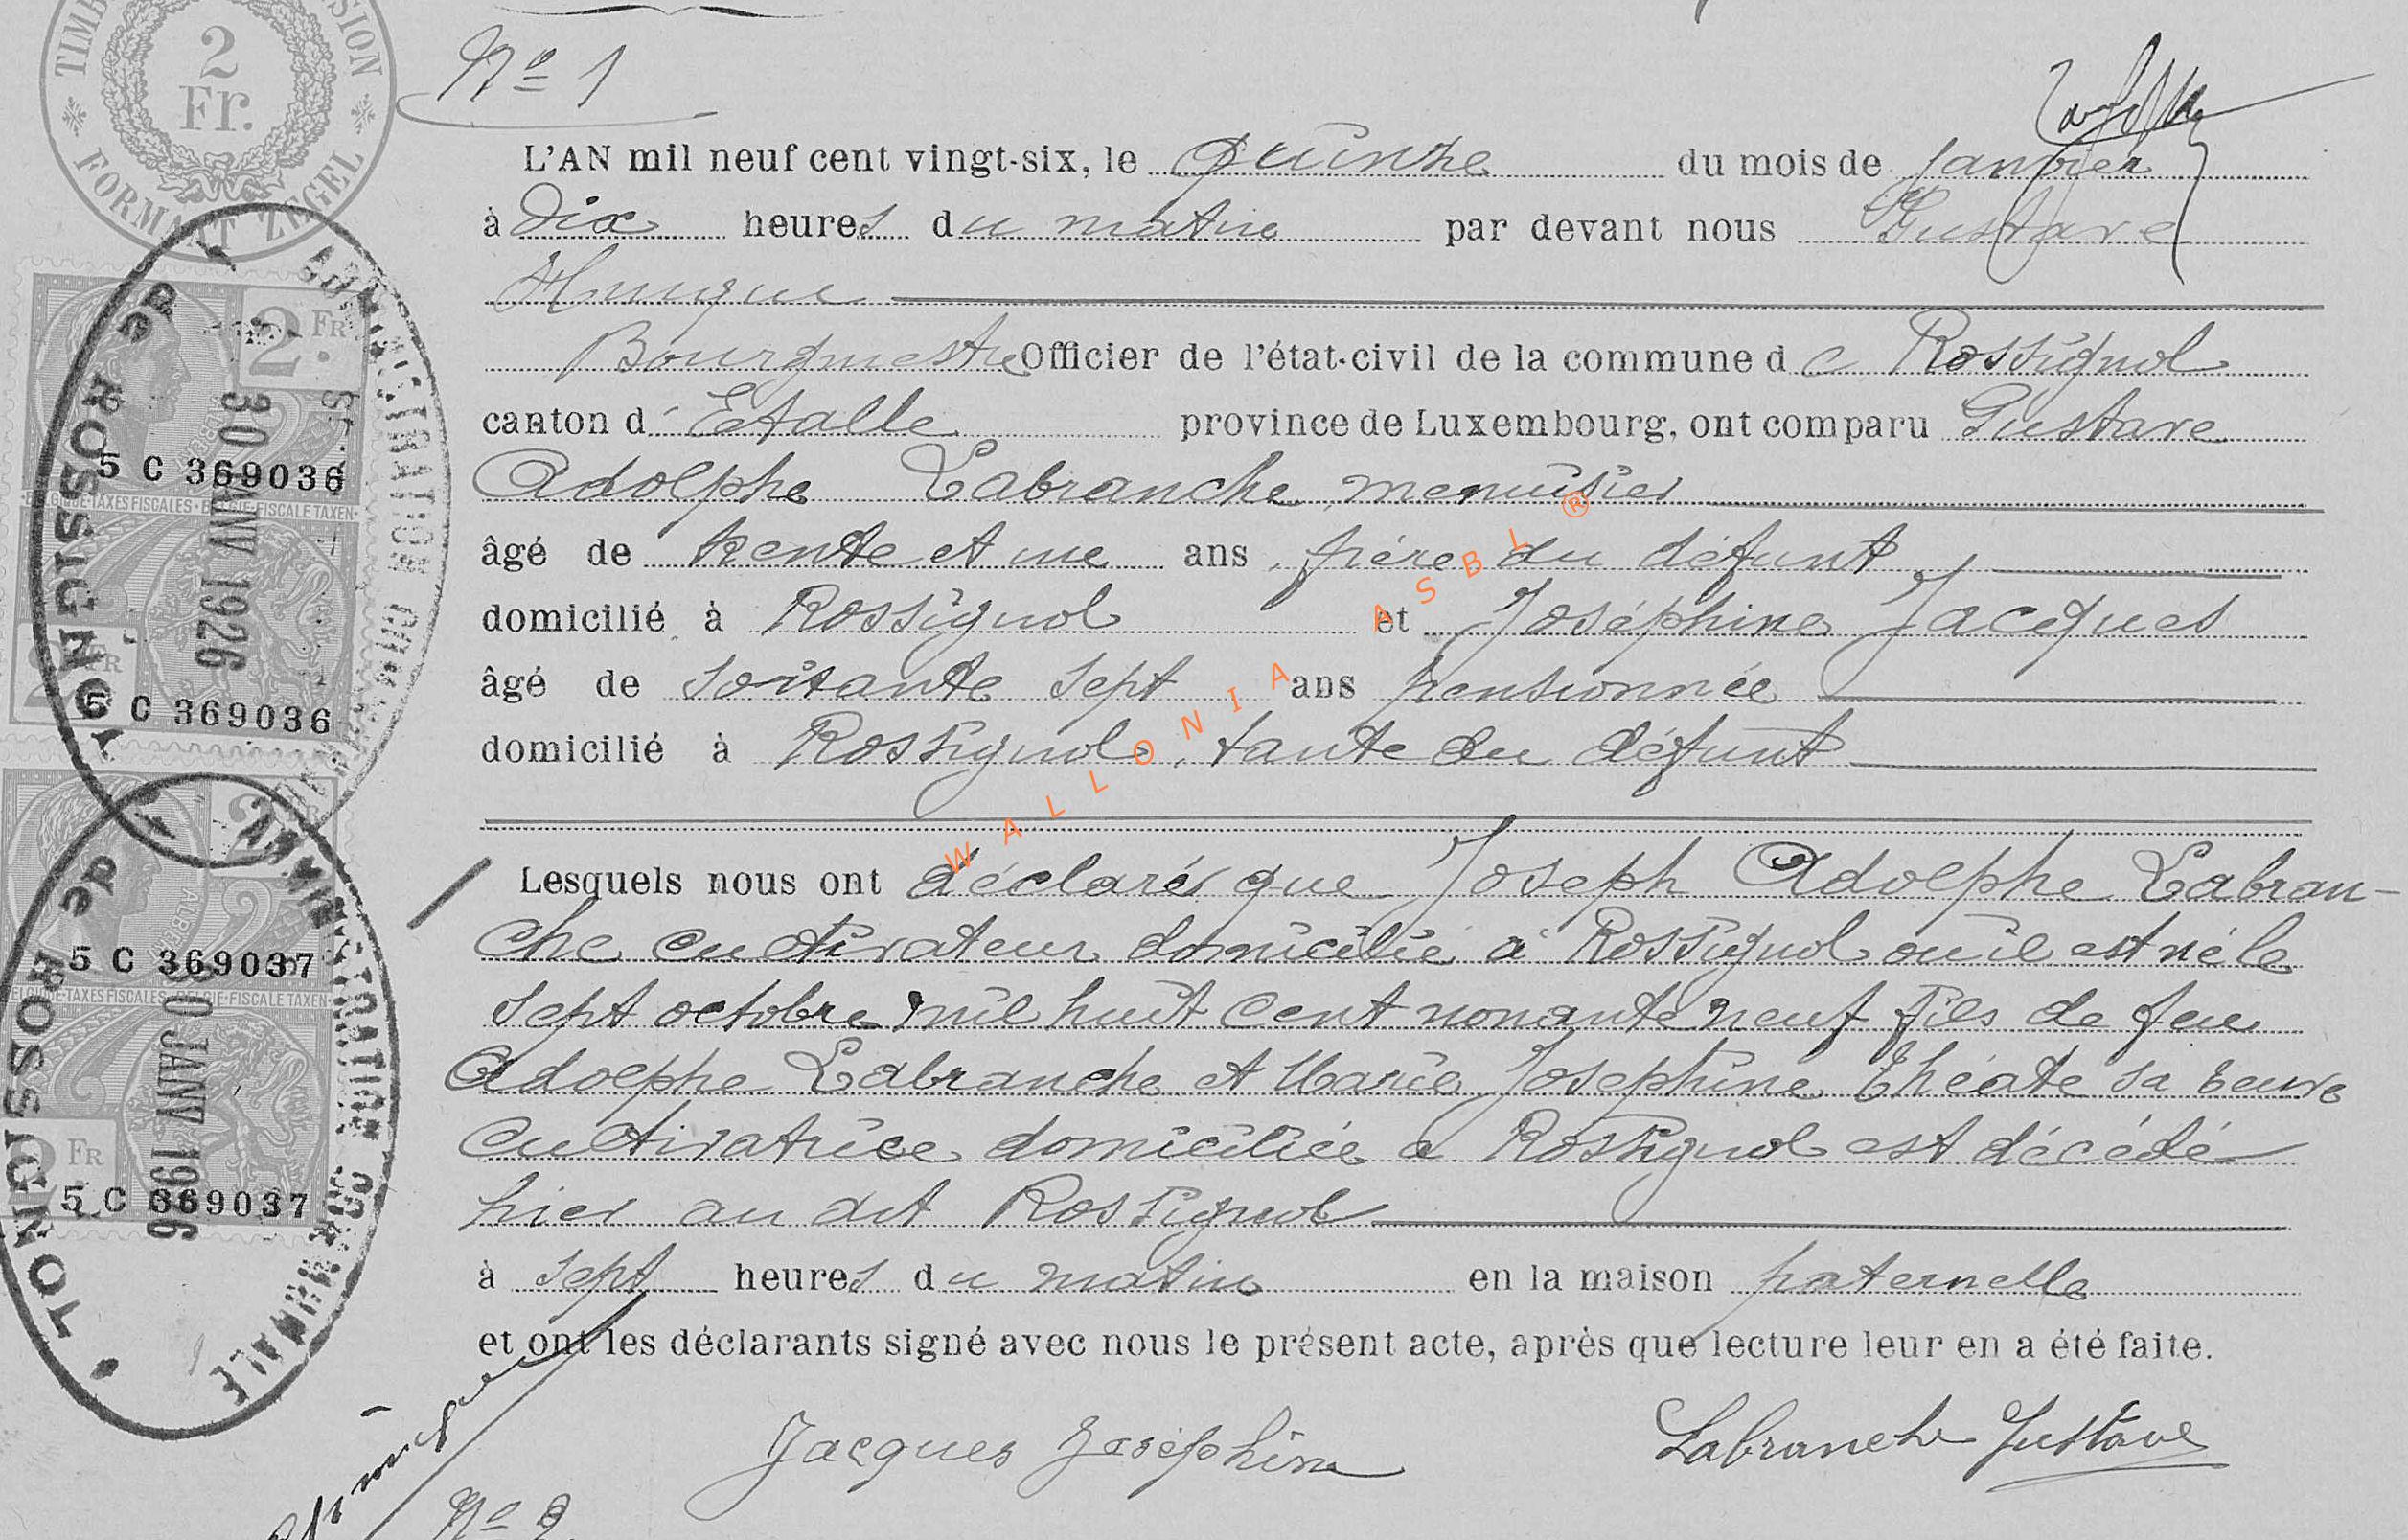 TIMB SION
2
Fr.
FORMAAT ZEGEL
Nº 1
L'AN mil neuf cent vingt-six, le quinze du mois de janvier
à dix heures du matin par devant nous Gustave
Bourgmestre Officier de l'état-civil de la commune de Rossignol
canton d'Etalle province de Luxembourg, ont comparu Gustave
Adolphe Labranche, menuisier
âgé de trente et un ans, frère du défunt
domicilié à Rossignol et Joséphine Jacques
âgé de soixante sept ans pensionnée
domicilié à Rossignol, tante du défunt
Lesquels nous ont déclarés que Joseph Adolphe Labran-
che cultivateur domicilié à Rossignol où il est né le
sept octobre mil huit cent nonante neuf fils de feu
Adolphe Labranche et Marie Josephine Théate sa veuve
cultivatrice domiciliée à Rossignol est décédé
hier au dit Rossignol
à sept heures du matin en la maison paternelle
et ont les déclarants signé avec nous le présent acte, après que lecture leur en a été faite.
Jacques Joséphine Labranche Gustave
Nº 2
2 FR
5 C 369036
BELGIQUE-TAXES FISCALES - BELGIE-FISCALE TAXEN
5 C 369036
ADMINISTRATION COMMUNALE
de ROSSIGNOL
30 JANV 1926
5 C 369037
BELGIQUE-TAXES FISCALES - BELGIE-FISCALE TAXEN
FR
5 C 369037
ADMINISTRATION COMMUNALE
de ROSSIGNOL
30 JANV 1926
WALLONIA ASBL ®